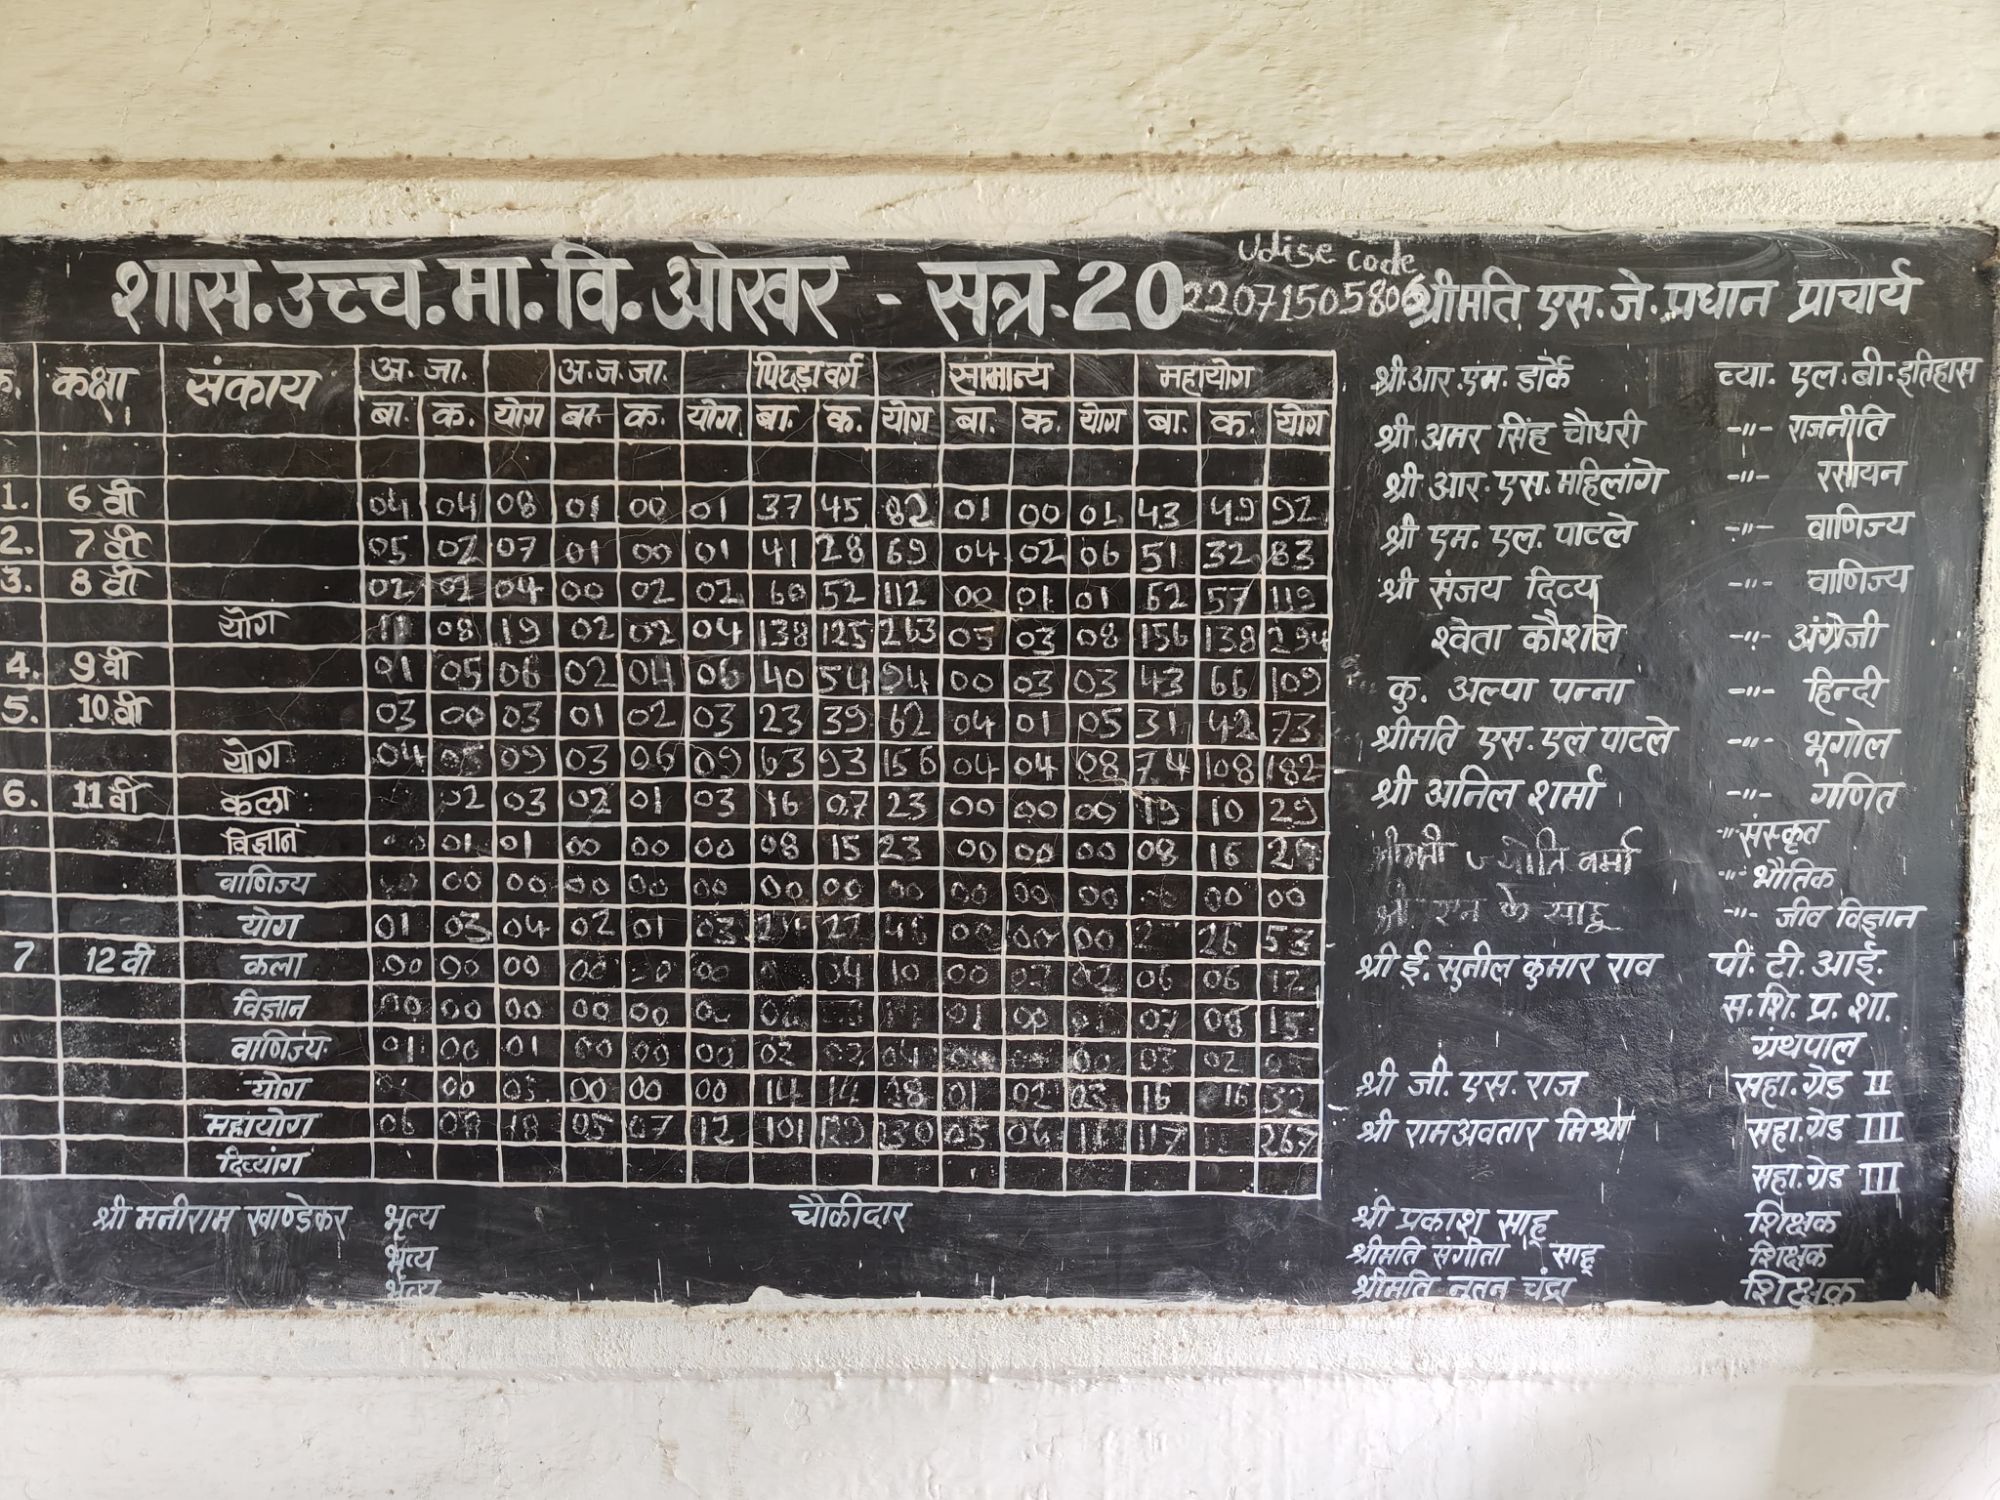 शास.उच्च.मा.वि.ओखर - सत्र.20
Udise code
22071505806
क. कक्षा संकाय अ.जा. अ.ज.जा. पिछड़ा वर्ग सामान्य महायोग
बा. क. योग बा. क. योग बा. क. योग बा. क. योग बा. क. योग
1. 6 वी 04 04 08 01 00 01 37 45 82 01 00 01 43 49 92
2. 7 वी 05 02 07 01 00 01 41 28 69 04 02 06 51 32 83
3. 8 वी 02 02 04 00 02 02 60 52 112 00 01 01 62 57 119
योग 11 08 19 02 02 04 138 125 263 05 03 08 156 138 294
4. 9 वी 01 05 06 02 04 06 40 54 94 00 03 03 43 66 109
5. 10 वी 03 00 03 01 02 03 23 39 62 04 01 05 31 42 73
योग 04 05 09 03 06 09 63 93 156 04 04 08 74 108 182
6. 11 वी कला 02 03 02 01 03 16 07 23 00 00 00 19 10 29
विज्ञान 00 01 01 00 00 00 08 15 23 00 00 00 08 16
वाणिज्य 00 00 00 00 00 00 00 00 00 00 00 00 00
योग 01 03 04 02 01 03 22 46 00 00 00 26 53
7 12 वी कला 00 00 00 00 00 00 04 10 00 02 02 06 06 12
विज्ञान 00 00 00 00 00 01 00 07 08 15
वाणिज्य 01 00 01 00 00 00 02 02 04 00 03 02
योग 00 00 00 00 14 14 28 01 02 03 16 16 32
महायोग 06 05 07 12 101 05 06 11 117 267
दिव्यांग
श्री मनीराम खाण्डेकर भृत्य चौकीदार
भृत्य
भृत्य
श्रीमति एस.जे.प्रधान प्राचार्य
श्री आर.एम. डार्के व्या. एल.बी.इतिहास
श्री अमर सिंह चौधरी -"- राजनीति
श्री आर.एस.महिलांगे -"- रसायन
श्री एम. एल. पाटले -"- वाणिज्य
श्री संजय दिव्य -"- वाणिज्य
श्वेता कौशले -"- अंग्रेजी
कु. अल्पा पन्ना -"- हिन्दी
श्रीमति एस.एल पाटले -"- भूगोल
श्री अनिल शर्मा -"- गणित
-"- संस्कृत
श्रीमती ज्योति वर्मा -"- भौतिक
श्री एन के साहू -"- जीव विज्ञान
श्री ई. सुनील कुमार राव पी. टी. आई.
स. शि. प्र. शा.
ग्रंथपाल
श्री जी. एस. राज सहा.ग्रेड II
श्री रामअवतार मिश्रा सहा.ग्रेड III
सहा.ग्रेड III
श्री प्रकाश साहू शिक्षक
श्रीमति संगीता साहू शिक्षक
श्रीमति नूतन चंद्रा शिक्षक